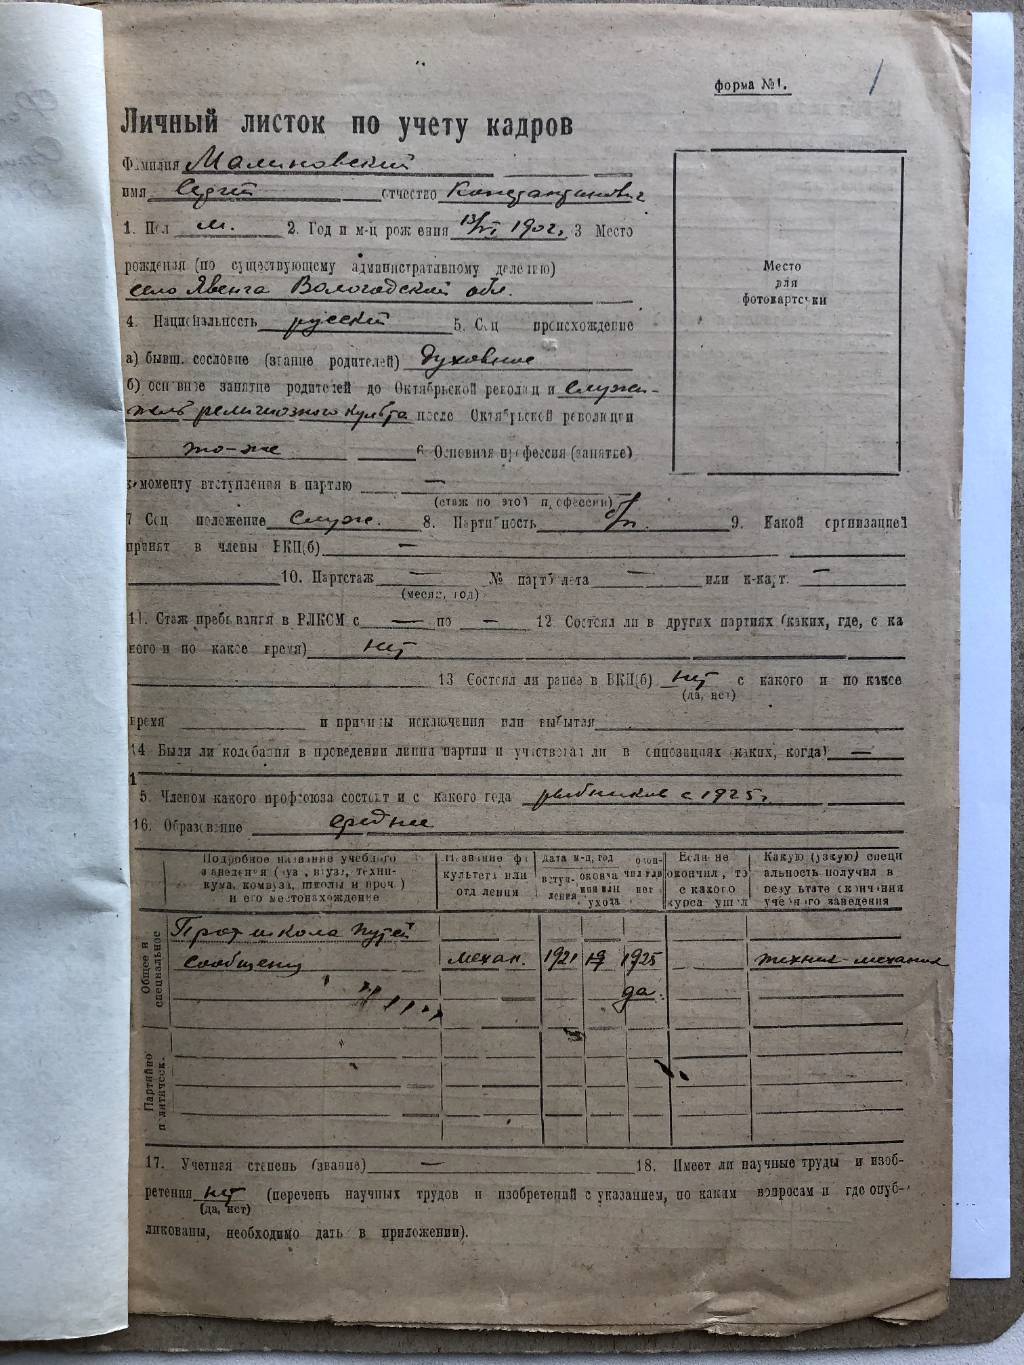 1
форма №1.
Личный листок по учету кадров
Фамилия Малиновский
имя Сергей отчество Константинович
1. Пол м. 2. Год и м-ц рождения 13/VI 1902г. 3 Место
рождения (по существующему административному делению)
село Явенга Вологодский обл.
4. Национальность русский 5. Соц происхождение
а) бывш. сословие (звание родителей) духовное
б) основное занятие родителей до Октябрьской революции служи-
тель религиозного культа после Октябрьской революции
то-же 6. Основная профессия (занятие)
к моменту втступления в партию —
(стаж по этой профессии)
7 Соц положение служ. 8. Партийность б/п. 9. Какой организацией
принят в члены ВКП(б) —
10. Партстаж — № партбилета — или к-карт. —
(месяц, год)
11. Стаж пребывангя в ВЛКСМ с — по — 12 Состоял ли в других партиях (каких, где, с ка
кого и по какое время) нет
13 Состоял ли ранее в ВКП(б) нет с какого и по какое
(да, нет)
время и причины исключения или выбытая
14 Были ли колебания в проведении линии партии и участвовал ли в оппозициях (каких, когда) —
1
5. Членом какого профсоюза состоит и с какого года рыбников с 1925г
16. Образование средние
Место
для
фотокарточки
Подробное название учебного
заведения (вуз, втуз, техни-
кума, комвуза, школы и проч.)
и его местонахождение
Название фа
культета или
отделения
Дата м-ц, год
вступ-
ления
оконча
ния или
ухода
окон-
чил или
нет
Если не
окончил, то
с какого
курса ушел
Какую (узкую) специ
альность получил в
результате окончания
учебного заведения
Общее и
специальное
Проф школа Путей
сообщения механ. 1921 19 1925 техник-механик
да.
Партийно
политическ.
17. Учетная степень (звание) — 18. Имеет ли научные труды и изоб-
ретения нет (перечень научных трудов и изобретений с указанием, по каким вопросам и где опуб-
(да, нет)
ликованы, необходимо дать в приложении).